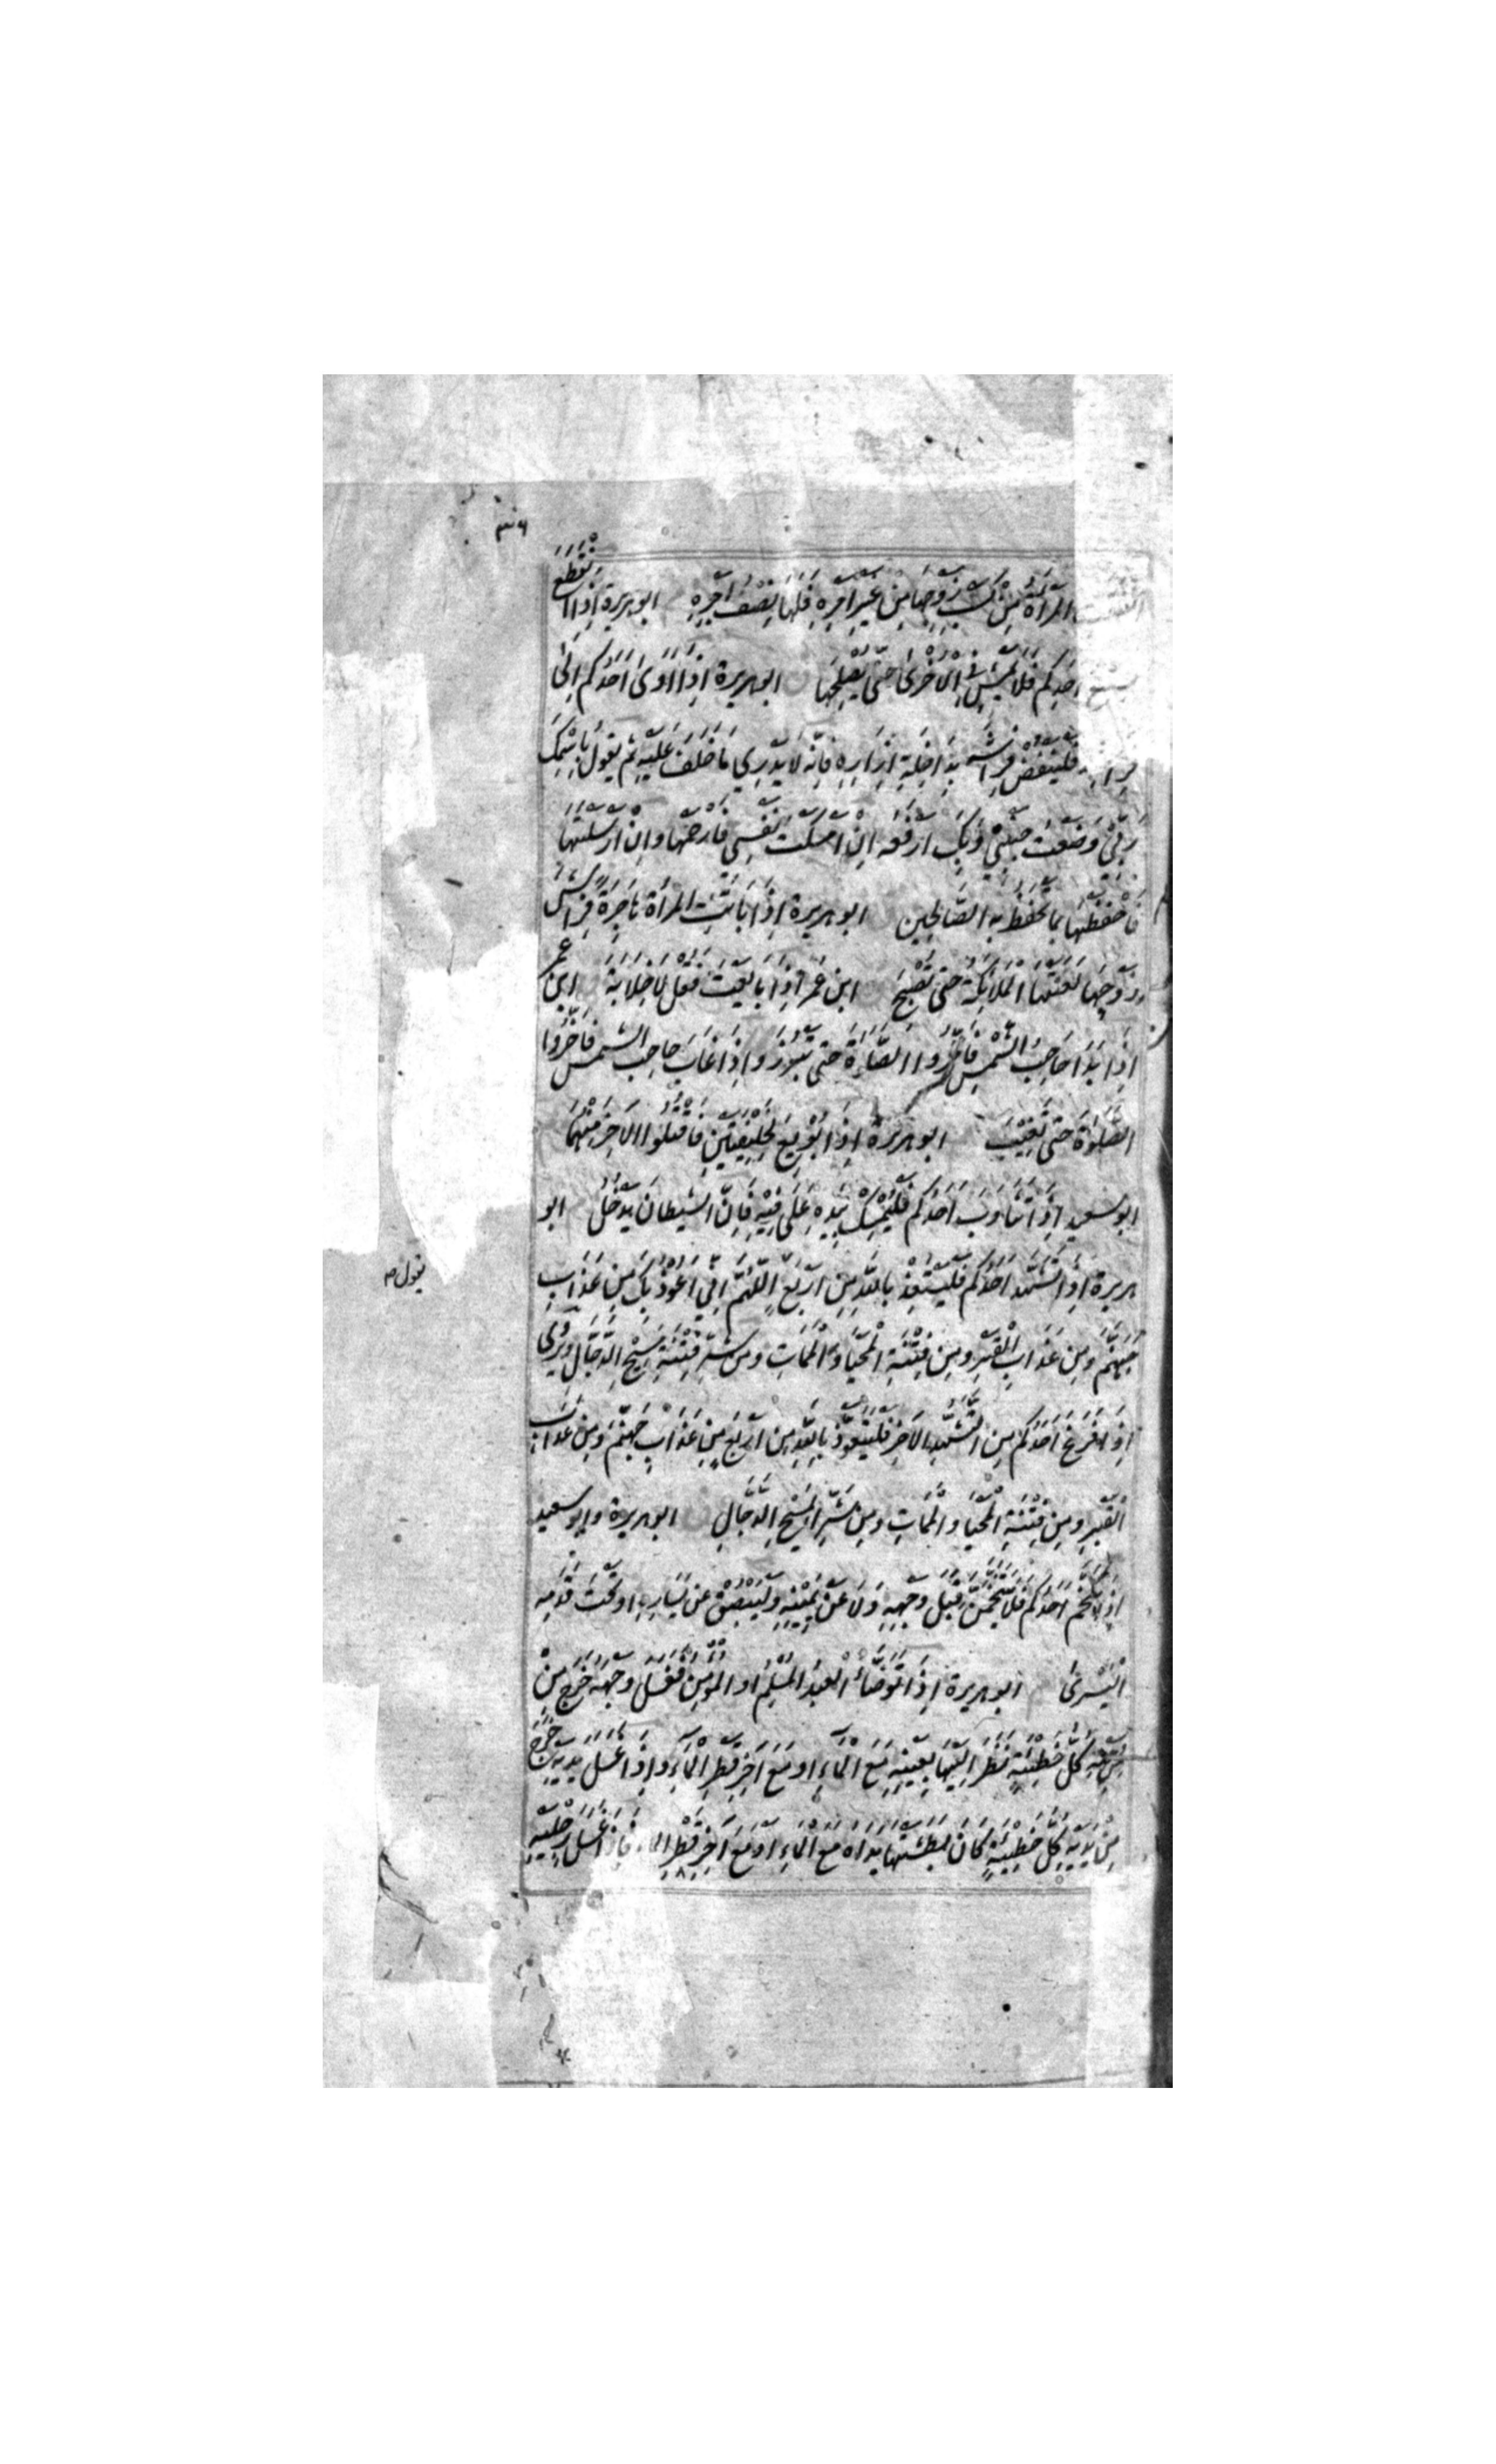 المرأة من كسب زوجها من غير أمره فلها نصف أجره ابو هريرة إذا انقطع
شسع أحدكم فلا يمش في الأخرى حتى يصلحها ابو هريرة إذا أوى أحدكم إلى
فراشه فلينفض فراشه بداخلة إزاره فإنه لا يدري ما خلف عليه ثم يقول باسمك
ربي وضعت جنبي وبك أرفعه إن أمسكت نفسي فارحمها وإن أرسلتها
فاحفظها بما تحفظ به الصالحين ابو هريرة إذا باتت المرأة هاجرة فراش
زوجها لعنتها الملائكة حتى تصبح ابن عمر إذا بايعت فقل لا خلابة ابن عمر
إذا بدا حاجب الشمس فأخروا الصلاة حتى تبرز وإذا غاب حاجب الشمس فأخروا
الصلوة حتى تغيب ابو هريرة إذا بويع لخليفتين فاقتلوا الآخر منهما
ابو سعيد إذا تثاوب أحدكم فليمسك بيده على فيه فإن الشيطان يدخل ابو
هريرة إذا تشهد أحدكم فليستعذ بالله من أربع اللهم إني أعوذ بك من عذاب
يقول
جهنم ومن عذاب القبر ومن فتنة المحيا والممات ومن شر فتنة مسيح الدجال ويروى
إذا فرغ أحدكم من التشهد الآخر فليتعوذ بالله من أربع من عذاب جهنم ومن عذاب
القبر ومن فتنة المحيا والممات ومن شر المسيح الدجال ابو هريرة وابو سعيد
إذا تنخم أحدكم فلا يتنخمن قبل وجهه ولا عن يمينه وليبصق عن يساره او تحت قدمه
اليسرى ابو هريرة إذا توضأ العبد المسلم او المؤمن فغسل وجهه خرج من
وجهه كل خطيئة نظر إليها بعينيه مع الماء او مع آخر قطر الماء وإذا غسل يديه خرج
من يديه كل خطيئة كان بطشتها يداه مع الماء أو مع آخر قطر الماء فإذا غسل رجليه